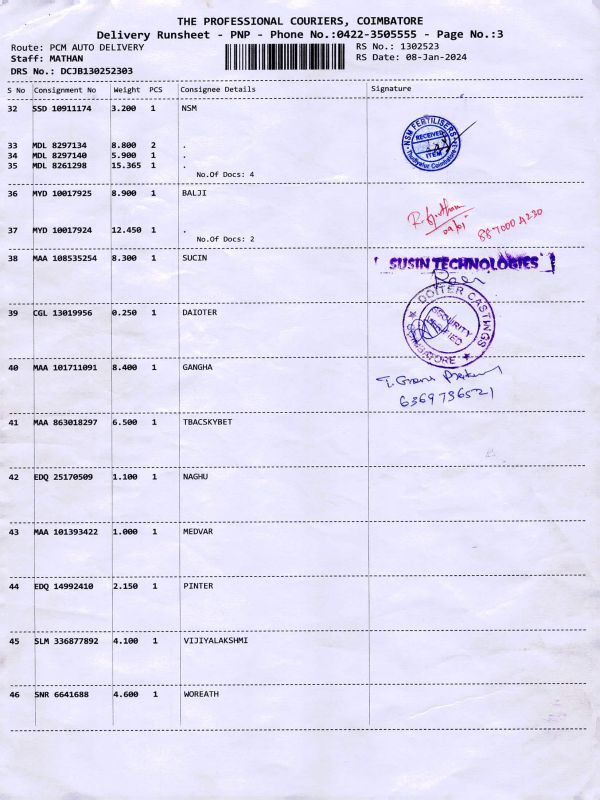 THE PROFESSIONAL COURIERS, COIMBATORE
Delivery Runsheet - PNP - Phone No.:0422-3505555 - Page No.:3
Route: PCM AUTO DELIVERY
RS No.: 1302523
Staff: MATHAN
RS Date: 08-Jan-2024
DRS No.: DCJB130252303
S No Consignment No Weight PCS Consignee Details Signature
32 SSD 10911174 3.200 1 NSM
NSM FERTILISERS
RECEIVED
ITEM
33 MDL 8297134 8.800 2 .
34 MDL 8297140 5.900 1 .
35 MDL 8261298 15.365 1 .
No.Of Docs: 4
36 MYD 10017925 8.900 1 BALJI
37 MYD 10017924 12.450 1 .
No.Of Docs: 2
38 MAA 108535254 8.300 1 SUCIN
SUSIN TECHNOLOGIES
39 CGL 13019956 0.250 1 DAIOTER
DOITER CASTINGS
SECURITY
COIMBATORE
40 MAA 101711091 8.400 1 GANGHA
6369736521
41 MAA 863018297 6.500 1 TBACSKYBET
42 EDQ 25170509 1.100 1 NAGHU
43 MAA 101393422 1.000 1 MEDVAR
44 EDQ 14992410 2.150 1 PINTER
45 SLM 336877892 4.100 1 VIJIYALAKSHMI
46 SNR 6641688 4.600 1 WOREATH